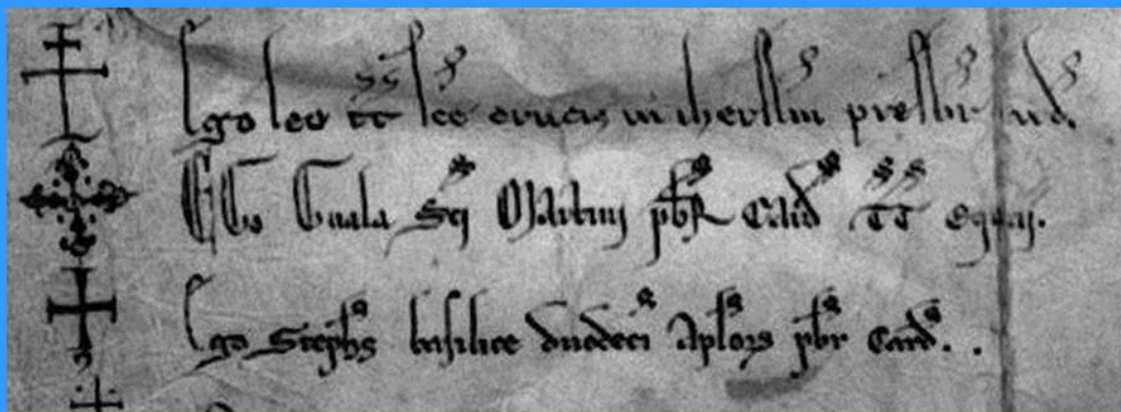 Ego leo tt sce crucis in iherslm presbr
EGo Guala Sci Martini pbr Card tt equitii.
Ego Stephs basilice duodeci Aplorz pbr Card. .